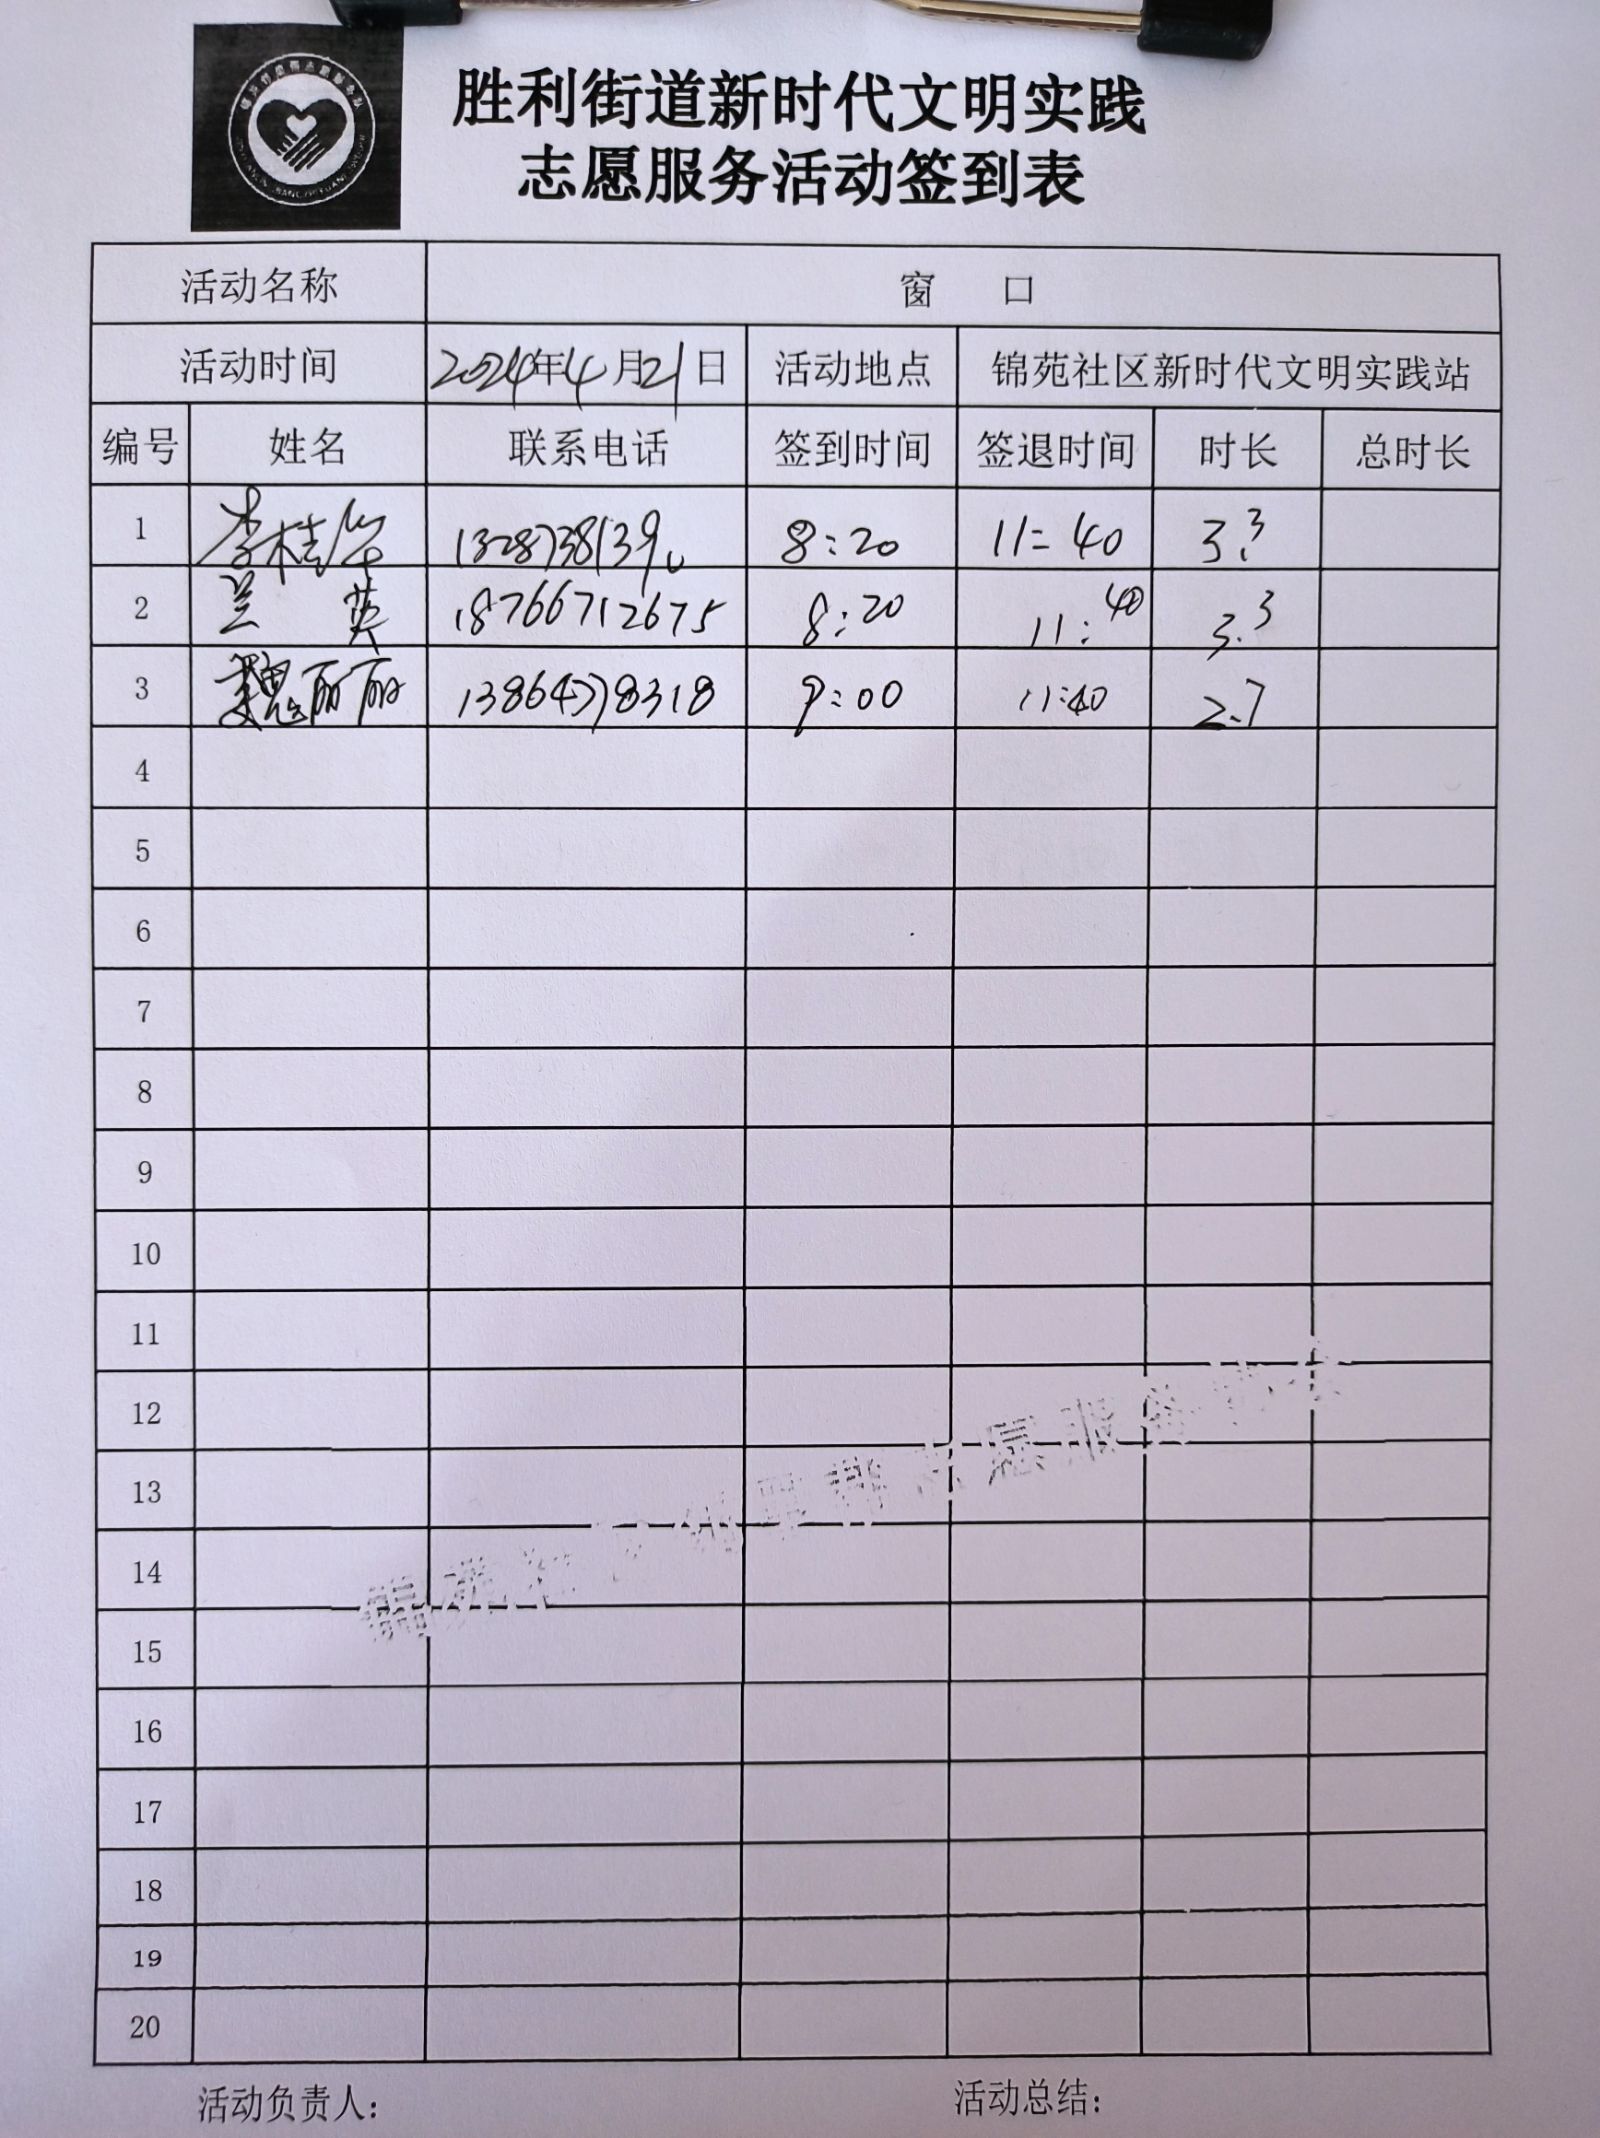 胜利街道新时代文明实践
志愿服务活动签到表
活动名称 窗 口
活动时间 2024年4月21日 活动地点 锦苑社区新时代文明实践站
编号 姓名 联系电话 签到时间 签退时间 时长 总时长
1 李桂华 8:20 11:40 3.3
2 兰英 18766712675 8:20 11:40 3.3
3 魏丽丽 13864778318 9:00 11:40 2.7
4
5
6
7
8
9
10
11
12
13
14
15
16
17
18
19
20
活动负责人: 活动总结: